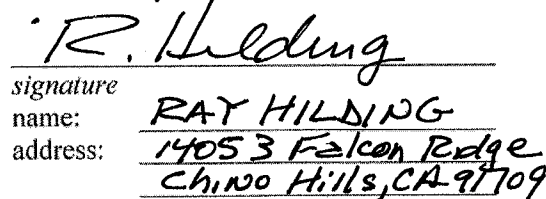 R. Hilding
signature
name: RAY HILDING
address: 14053 Falcon Ridge
Chino Hills, CA 91709